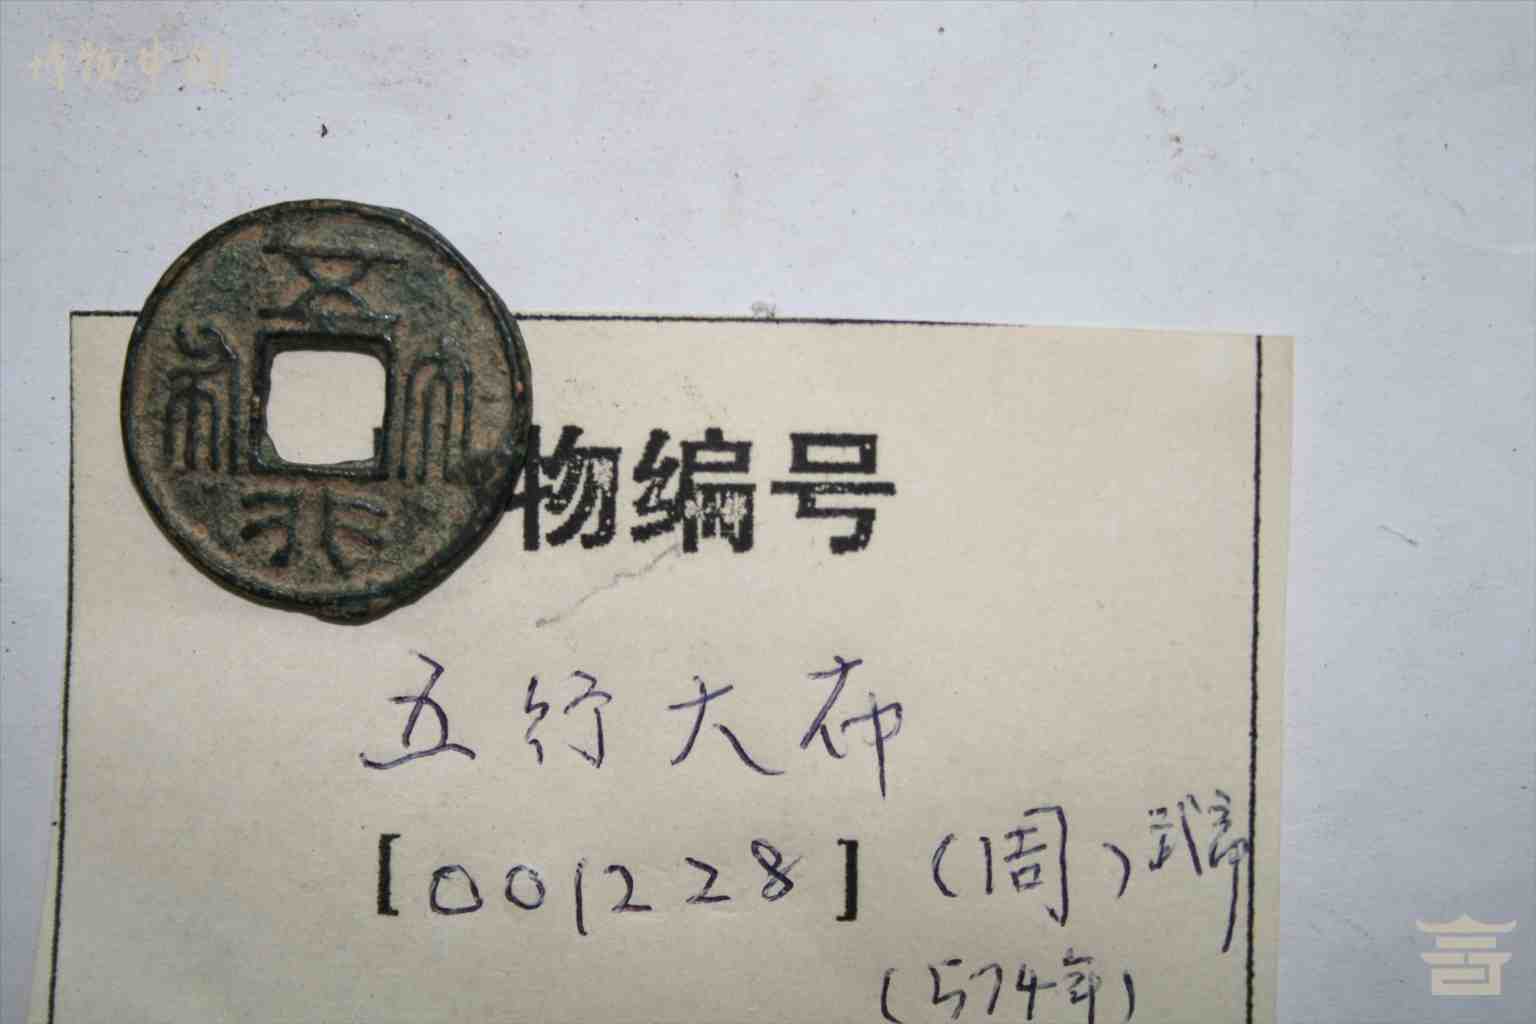 博物中国
五行大布
物编号
五行大布
[001228] (周) 武帝
(574年)